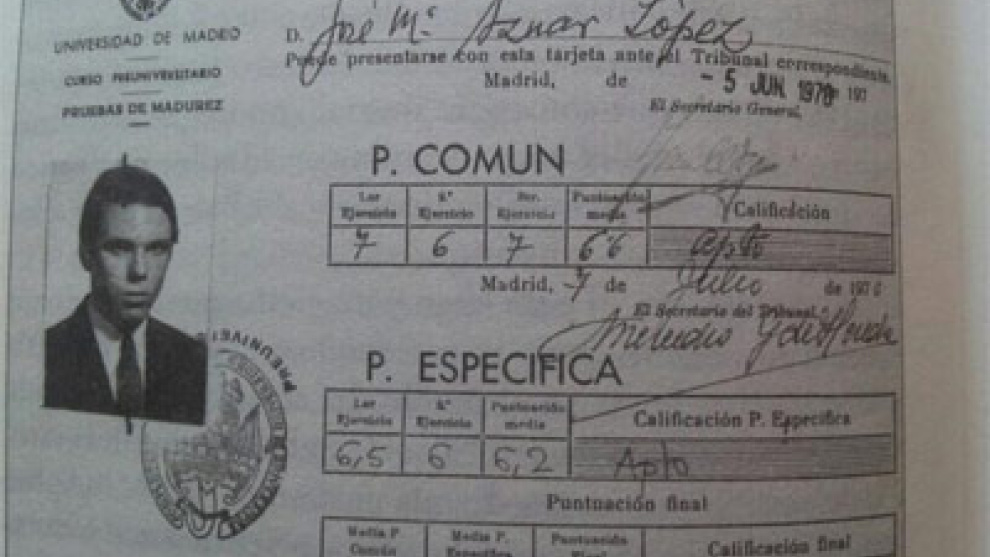 UNIVERSIDAD DE MADRID
CURSO PREUNIVERSITARIO
PRUEBAS DE MADUREZ
D. José Mª Aznar López
Puede presentarse con esta tarjeta ante el Tribunal correspondiente.
Madrid, de - 5 JUN 1970 197
El Secretario General,
P. COMUN
1.er Ejercicio 2.º Ejercicio 3er. Ejercicio Puntuación media Calificación
7 6 7 6'6 apto
Madrid, 7 de Julio de 197
El Secretario del Tribunal,
P. ESPECIFICA
1.er Ejercicio 2.º Ejercicio Puntuación media Calificación P. Específica
6,5 6 6,2 Apto
Puntuación final
Media P. Común Media P. Específica Puntuación Final Calificación final
PREUNIVE